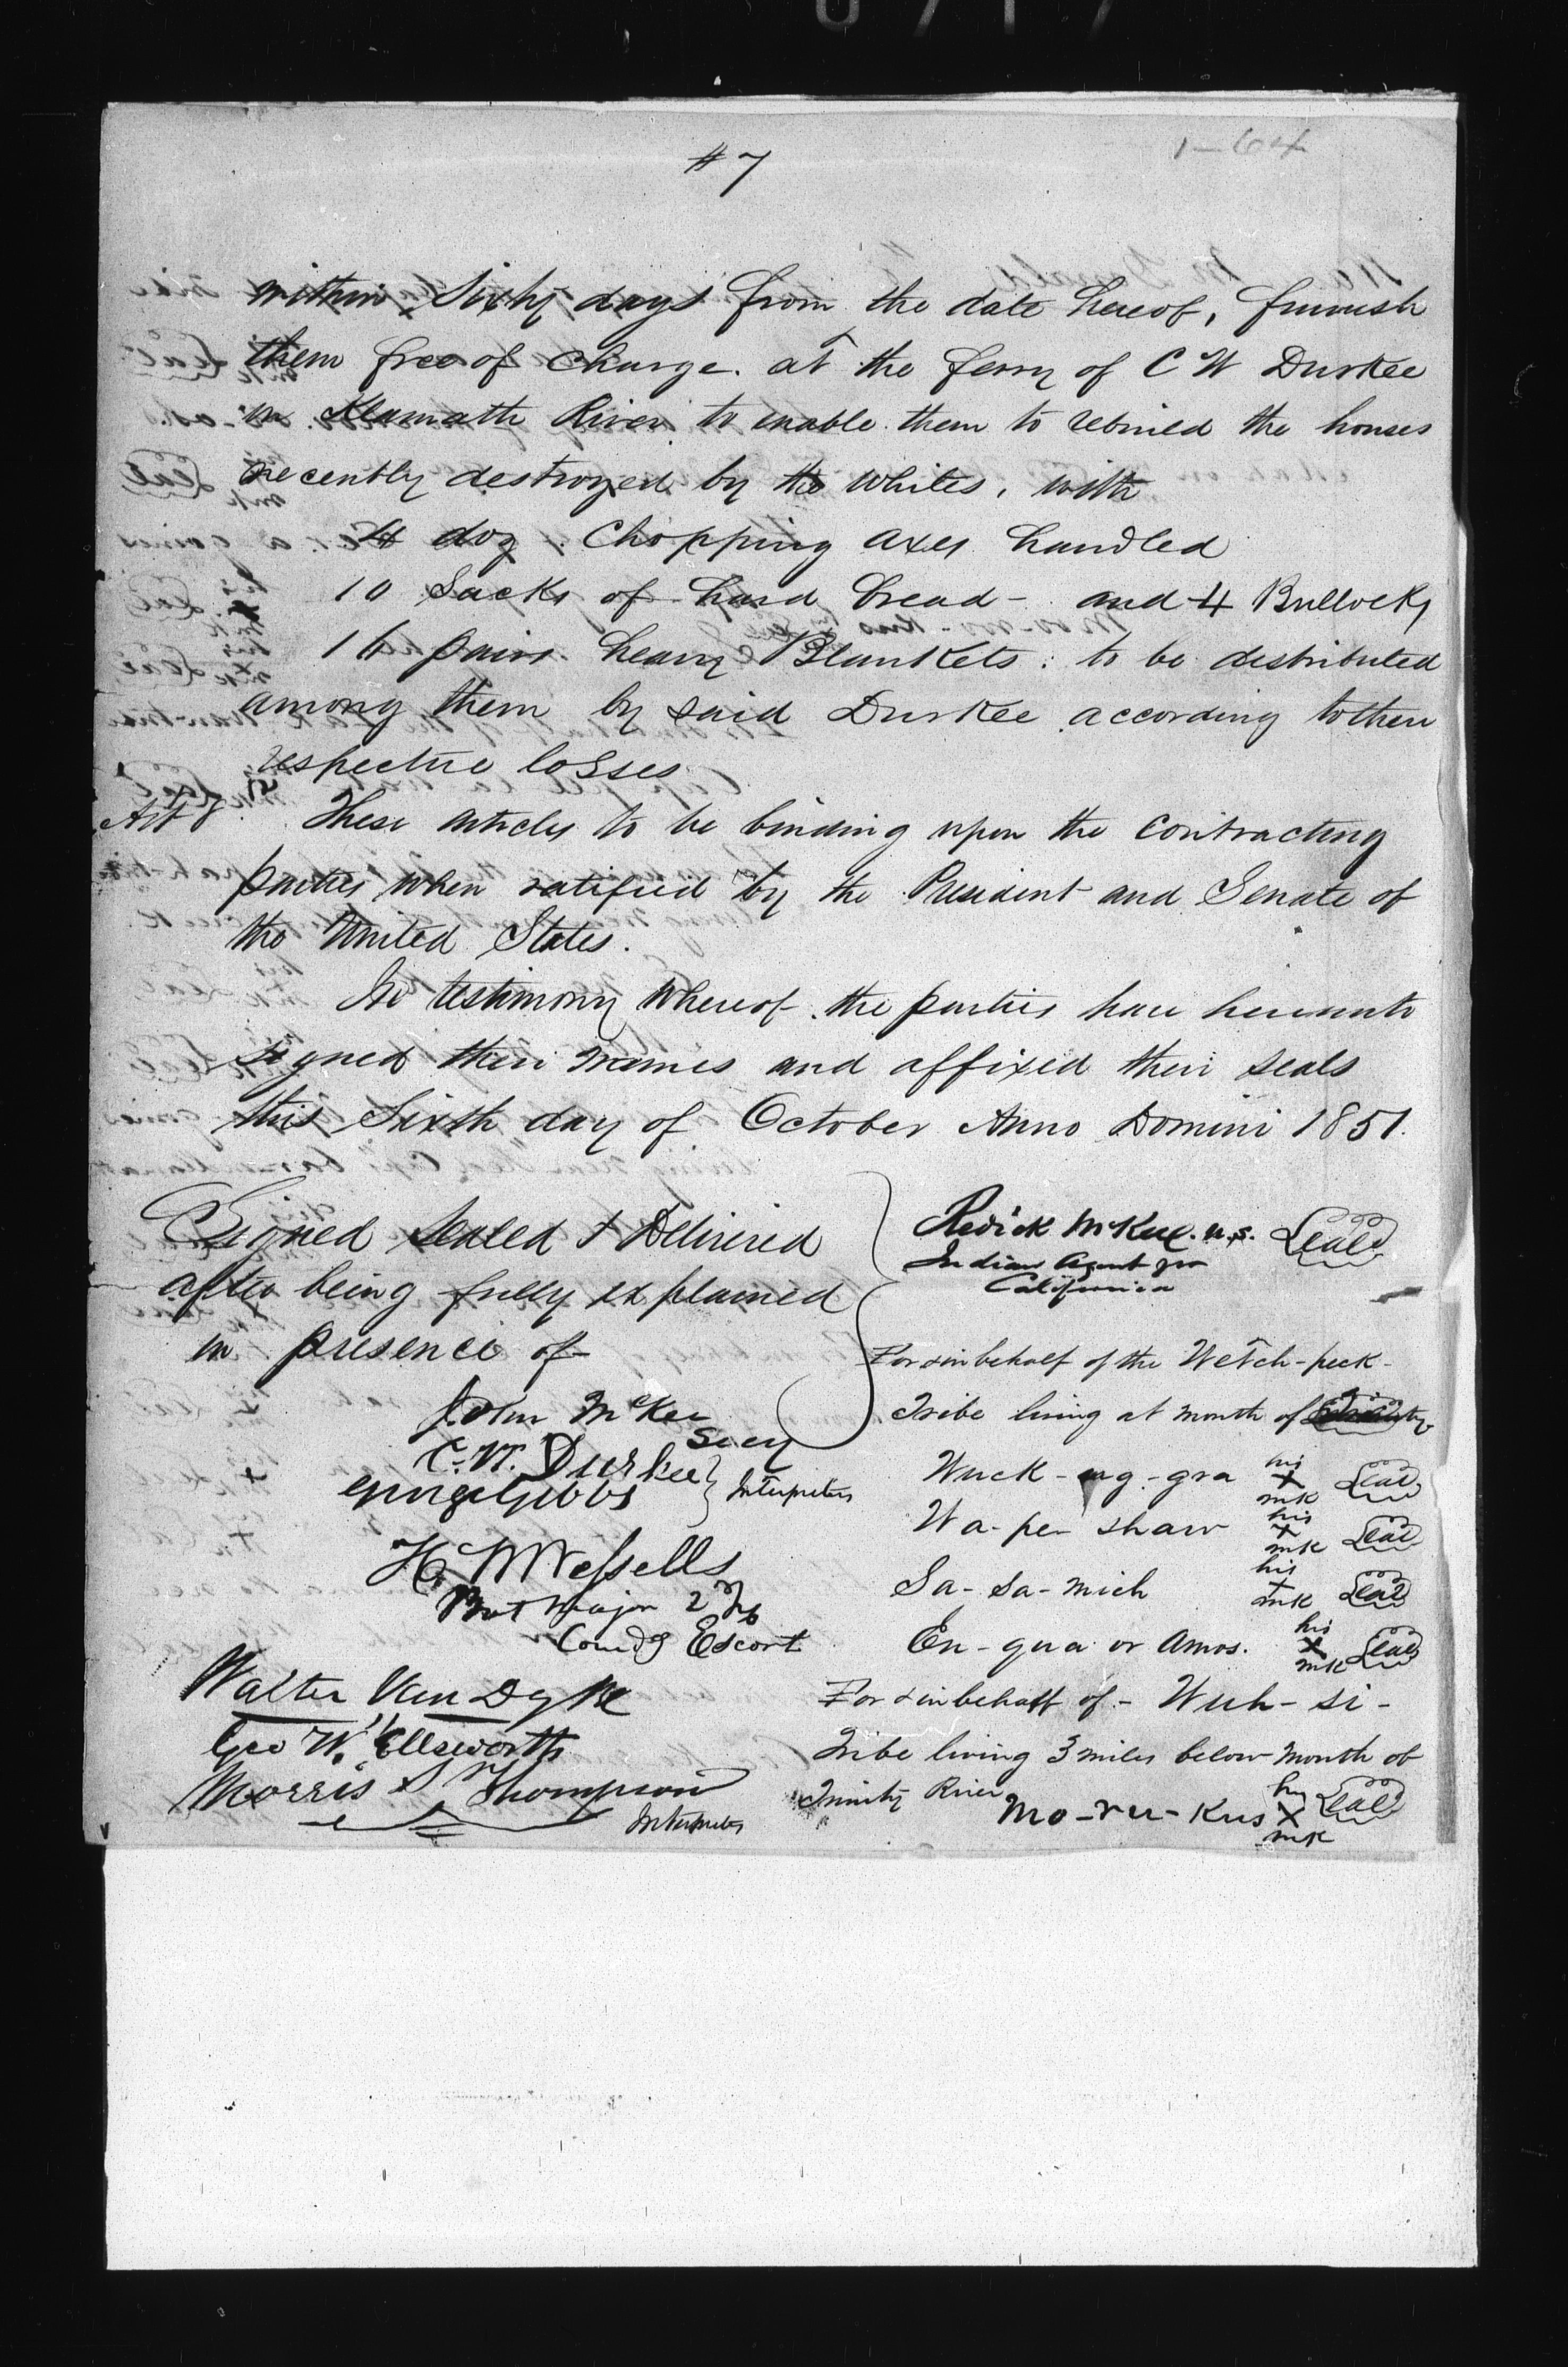 #7
1-64
within Sixty days from the date hereof, furnish
them free of Charge. at the ferry of C W Durkee
on Klamath River. to enable them to rebuild the houses
recently destroyed by the Whites, with
4 doz. Chopping axes handled
10 Sacks of hard bread - and 4 Bullocks
16 pairs heavy Blankets: to be distributed
among them by said Durkee according to their
respective losses
Art 8. These articles to be binding upon the contracting
parties, when ratified by the President and Senate of
the United States.
In testimony Whereof. the parties have hereunto
signed their names and affixed their seals
this Sixth day of October Anno Domini 1851.
Signed Sealed & Delivered
after being fully explained
in presence of
John McKee
Secy
C. W. Durkee
George Gibbs
Interpreters
H. W Wessells
Bvt Major 2d Inf
Comdg Escort
Walter Van Dyke
Geo W. Ellsworth
Morris S Thompson
Interpreters
Redick McKee. U.S. Seal
Indian Agent for
California
For & in behalf of the Wetch-peck-
Tribe living at mouth of Trinity
Wuck-ug-gra his X mk Seal
Wa-pe-shaw his X mk Seal
Sa-sa-mich his X mk Seal
En-qua or Amos. his X mk Seal
For & in behalf of - Wuh-si-
Tribe living 3 miles below mouth of
Trinity River
Mo-ru-kus his X mk Seal